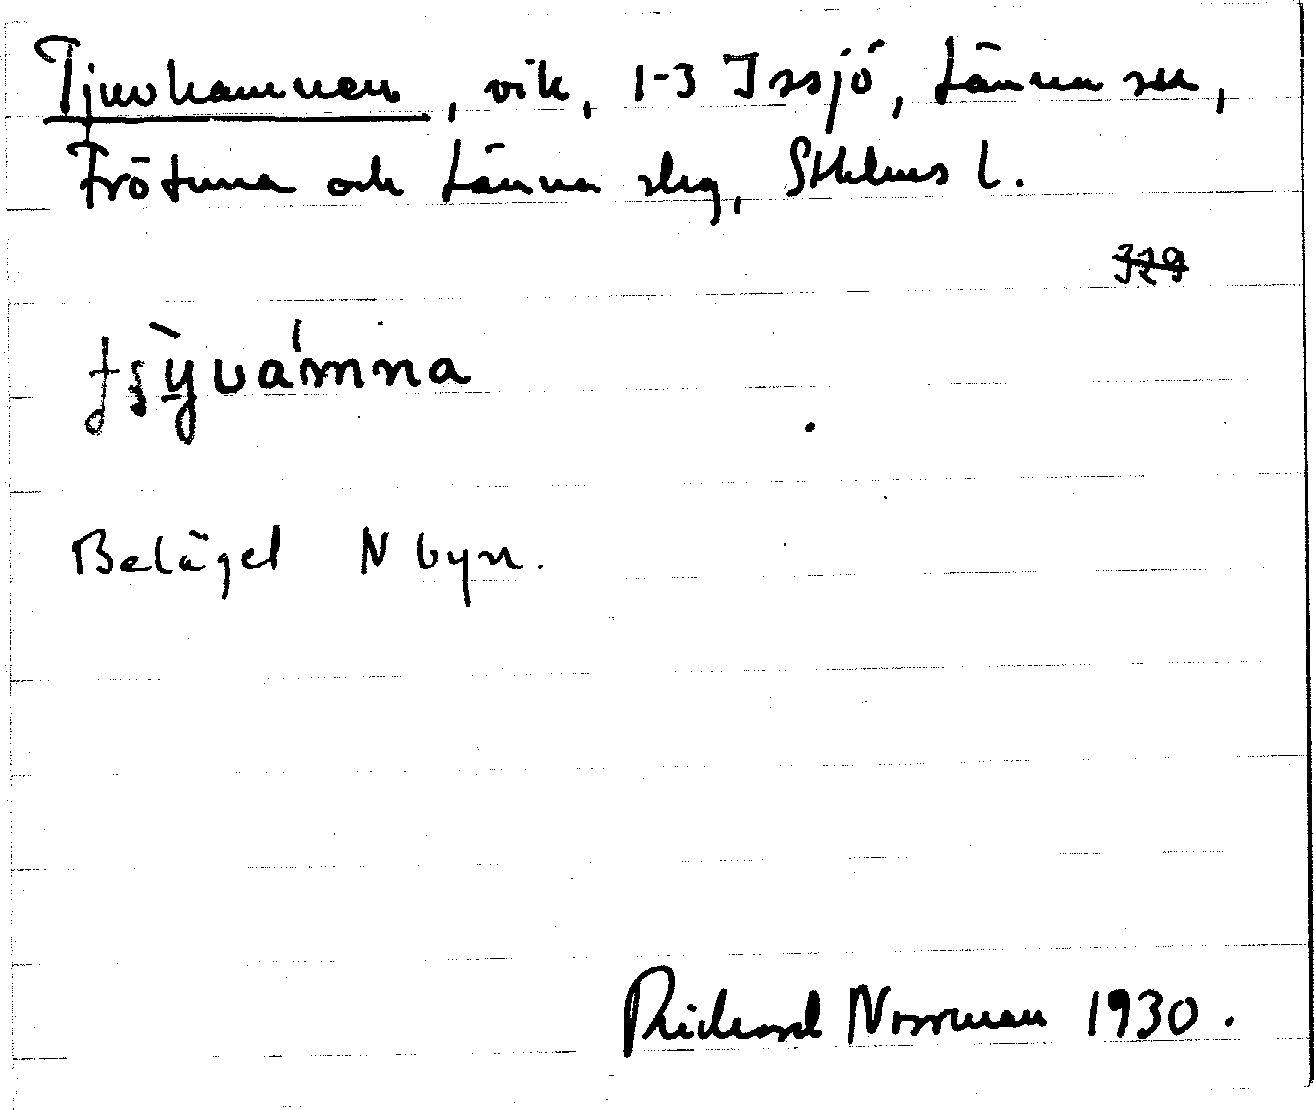 Tjuvhamnen, vik, 1-3 Issjö, Länna sn,
Frötuna och Länna skg, Sthlms l.
329
Beläget N byn.
Richard Norrman 1930.